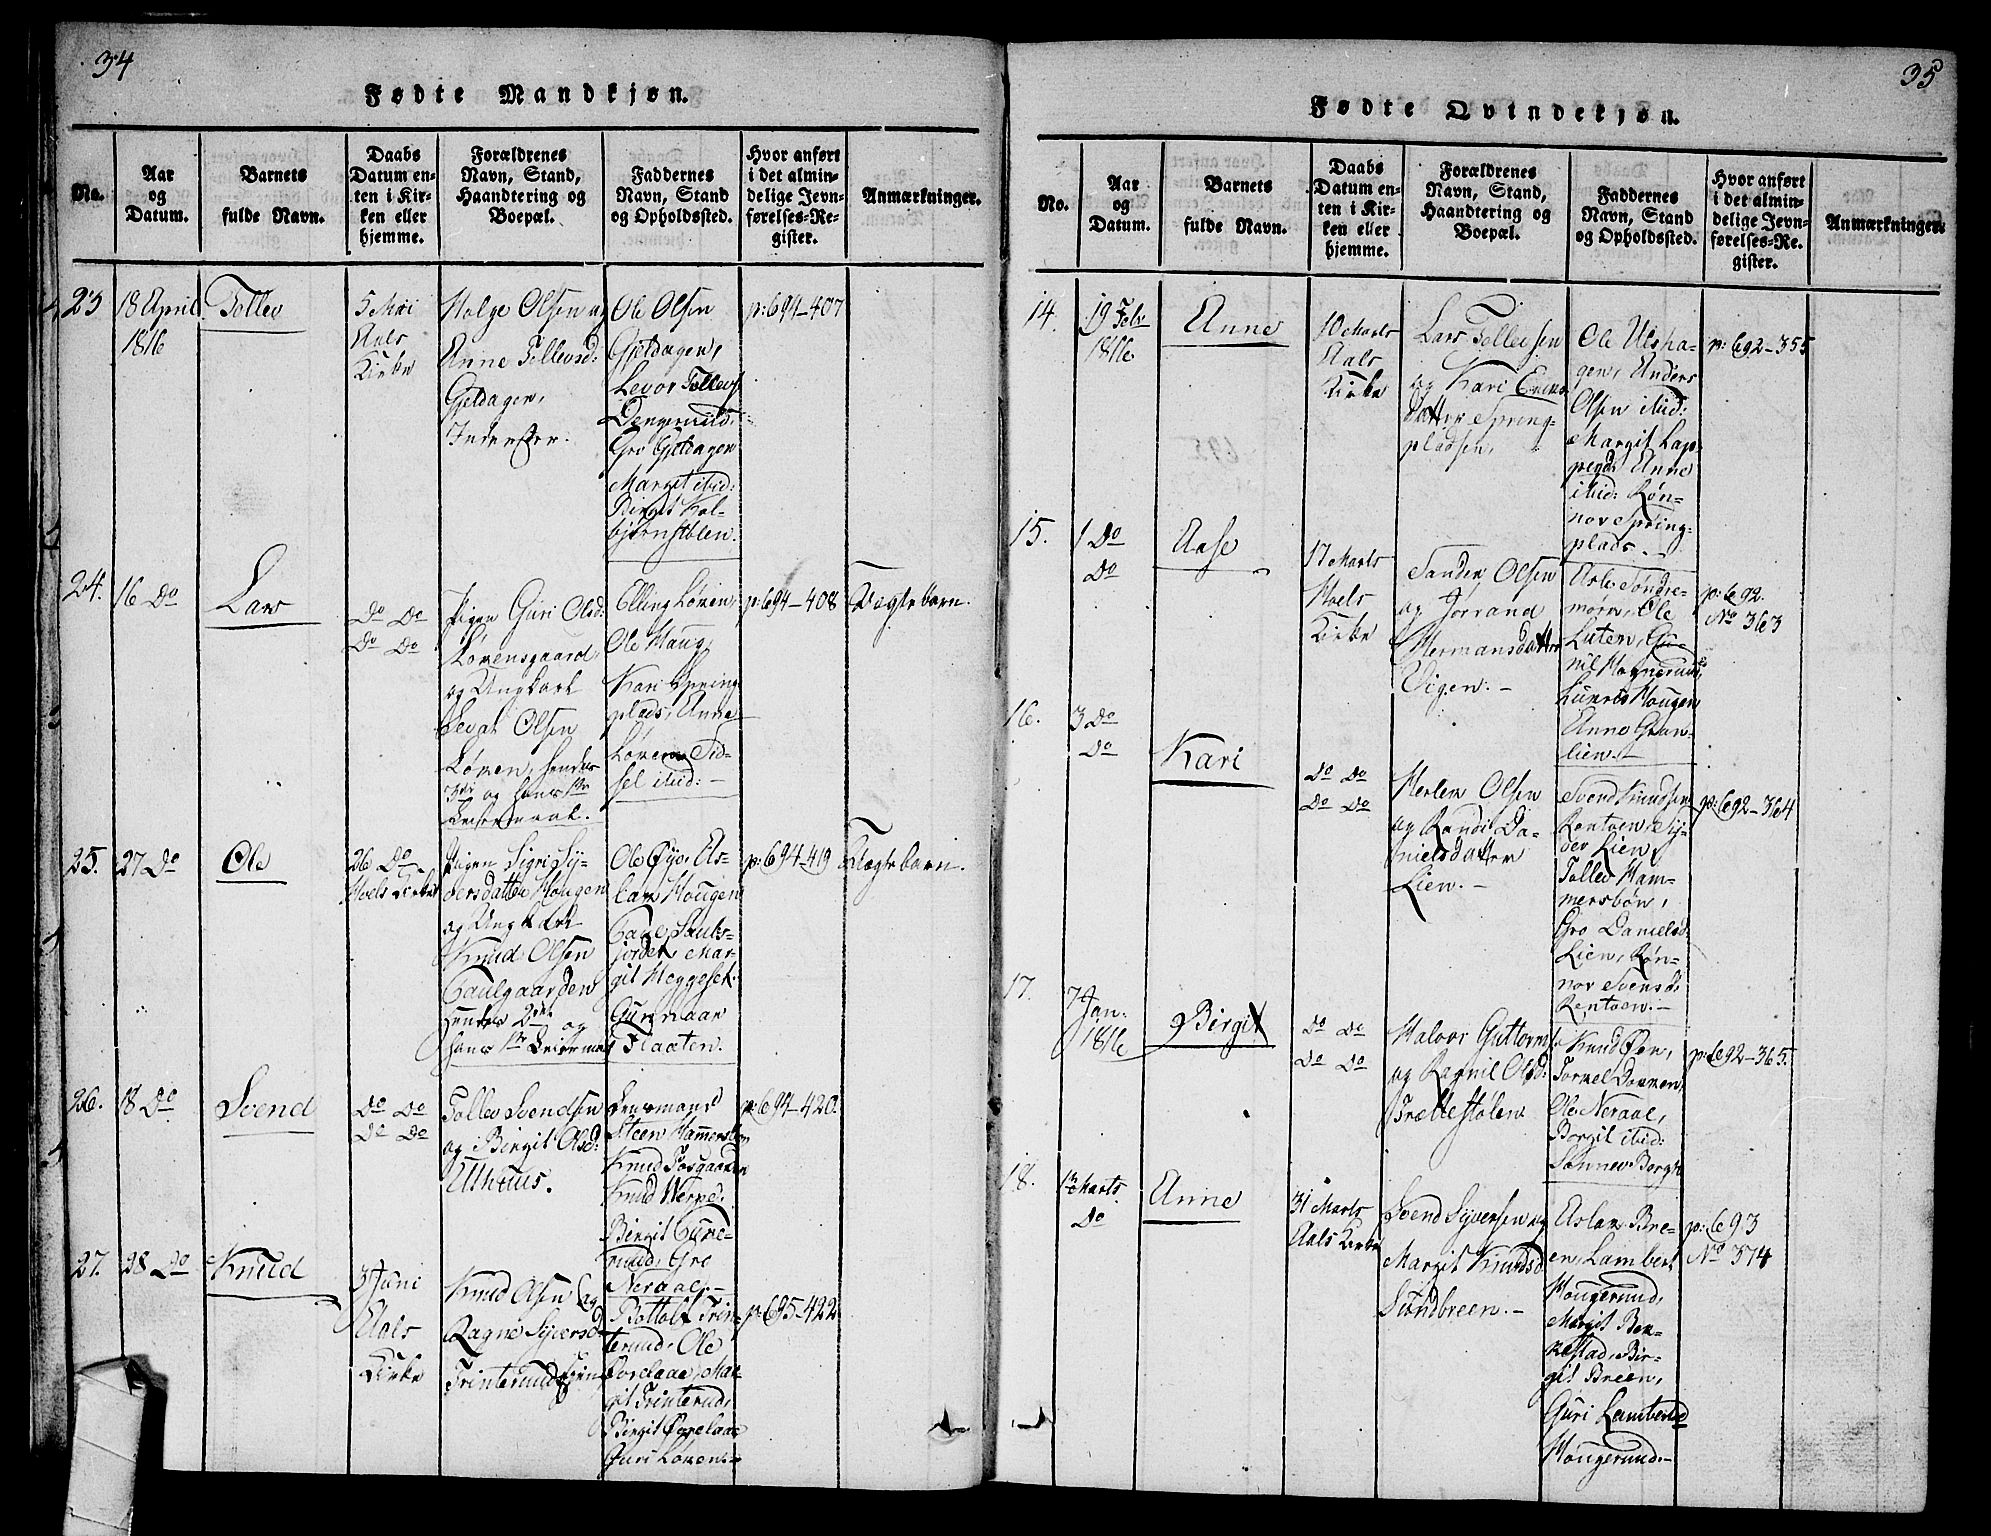 34
Fødte Mandkjøn.
No.
Aar
og
Datum.
Barnets
fulde Navn.
Daabs
Datum en-
ten i Kir-
ken eller
hjemme.
Forældrenes
Navn, Stand,
Haandtering og
Boepæl.
Faddernes
Navn, Stand
og Opholdssted.
Hvor anført
i det almin-
delige Jevn-
førelses-Re-
gister.
Anmærkninger.
23
18 April
1816
Tollev
5 Mai
Aals
Kirke
Helge Olsen og
Anne Tollevsd:
Gjeldagen,
Inderster.
Ole Olsen
Gjeldagen,
Levor Tollevs
Dengerud,
Gro Gjeldagen
Margit ibid:
Birgit Kol-
bjørnstølen.
p: 694–407
24.
16 Do
Lars
Do Do
Do Do
Pigen Guri Olsd:
Løvensgaard,
og Ungkarl
Levor Olsen
Løven, hendes
3die og hans 1ste
Leiermaal.
Elling Løven,
Ole Haug,
Kari Spring
plads, Anne
Løven, Sid-
sel ibid:–
p: 694–408
Uægte barn.
25.
27 Do
Ole
26 Do
Hoels Kirke
Pigen Sigri Sy-
versdatter Hougen
og Ungkarl
Knud Olsen
Gaulgaarden
hendes 2den og
hans 1ste Leiermaal
Ole Øye, As-
lak Hougen
margit Heggeset.
Gunnaar
Flaaten.
p: 694–419
Uægte barn.
26.
18 Do
Svend
Do Do
Do Do
Tollev Svendsen
og Birgit Olsd:
Uthuus.
Lensmand
Steen Hammersbøen
Knud Torsgaarden
Knud Werpe,
Birgit Gure-
rud, Gro
Neraal.–
p: 694–420.
27.
28 Do
Knud
3 Juni
Aals
Kirke
Knud Olsen og
Ragne Syversd
Trinterud
Bottolv Trin-
terud, Ole
Torelaae, Mar-
git Trinterud,
Birgit Torelaae
Guri Løven.–
p: 695–422
35
Fødte Qvindekjøn.
No.
Aar
og
Datum.
Barnets
fulde Navn.
Daabs
Datum en-
ten i Kir-
ken eller
hjemme.
Forældrenes
Navn, Stand,
Haandtering og
Boepæl.
Faddernes
Navn, Stand
og Opholdssted.
Hvor anført
i det almin-
delige Jevn-
førelses-Re-
gister.
Anmærkninger.
14.
19 Febr
1816
Anne
10 Marts
Aals
Kirke
Lars Tollevsen
og Kari Eriks
Datter Spring-
pladsen,
Ole Ulsha-
gen, Anders
Olsen ibid:
Margit Lap-
pegd: Anne
ibid: Røn-
nov Spring-
plads.–
p: 692–355
15.
1 Do
Do
Aase
17 Marts
Hoels
Kirke
Sander Olsen
og Jorrand
Hermansdatter
Vigen.–
Asle Søndre-
mørn, Ole
Luten, Gu-
nil Høgnerud,
Livret Hougen
Anne Gran-
lien.–
p: 692.
No 363
16.
3 Do
Do
Kari
Do Do
Do Do
Herlek Olsen
og Randi Da-
nielsdatter
Lien.–
Svend Knudsen
Rentoen, Sy-
ver Lien,
Tollev Ham-
mersbøn,
Gro Danielsd:
Lien, Røn-
nov Svensd:
Rentoen.–
p: 692–364
17.
7 Jan.
1816
Birgit
Do Do
Do Do
Halvor Guttorms
og Ragnil Olsd:
Trættestølen
Knud Øen,
Torkel Dokken,
Ole Neraal,
Borgit ibid:
Sønnev Borgh
p: 692–365.
18.
12 Marts
Do
Anne
31 Marts
Aals Kirke
Svend Syversen og
Margit Knudsd
Sundbreen.–
Aslak Bre-
en, Lambert
Hougerud,
Margit Bak-
kestad, Bir-
git Breen,
Guri Lambertsd
Hougerud.–
p: 693
No 374